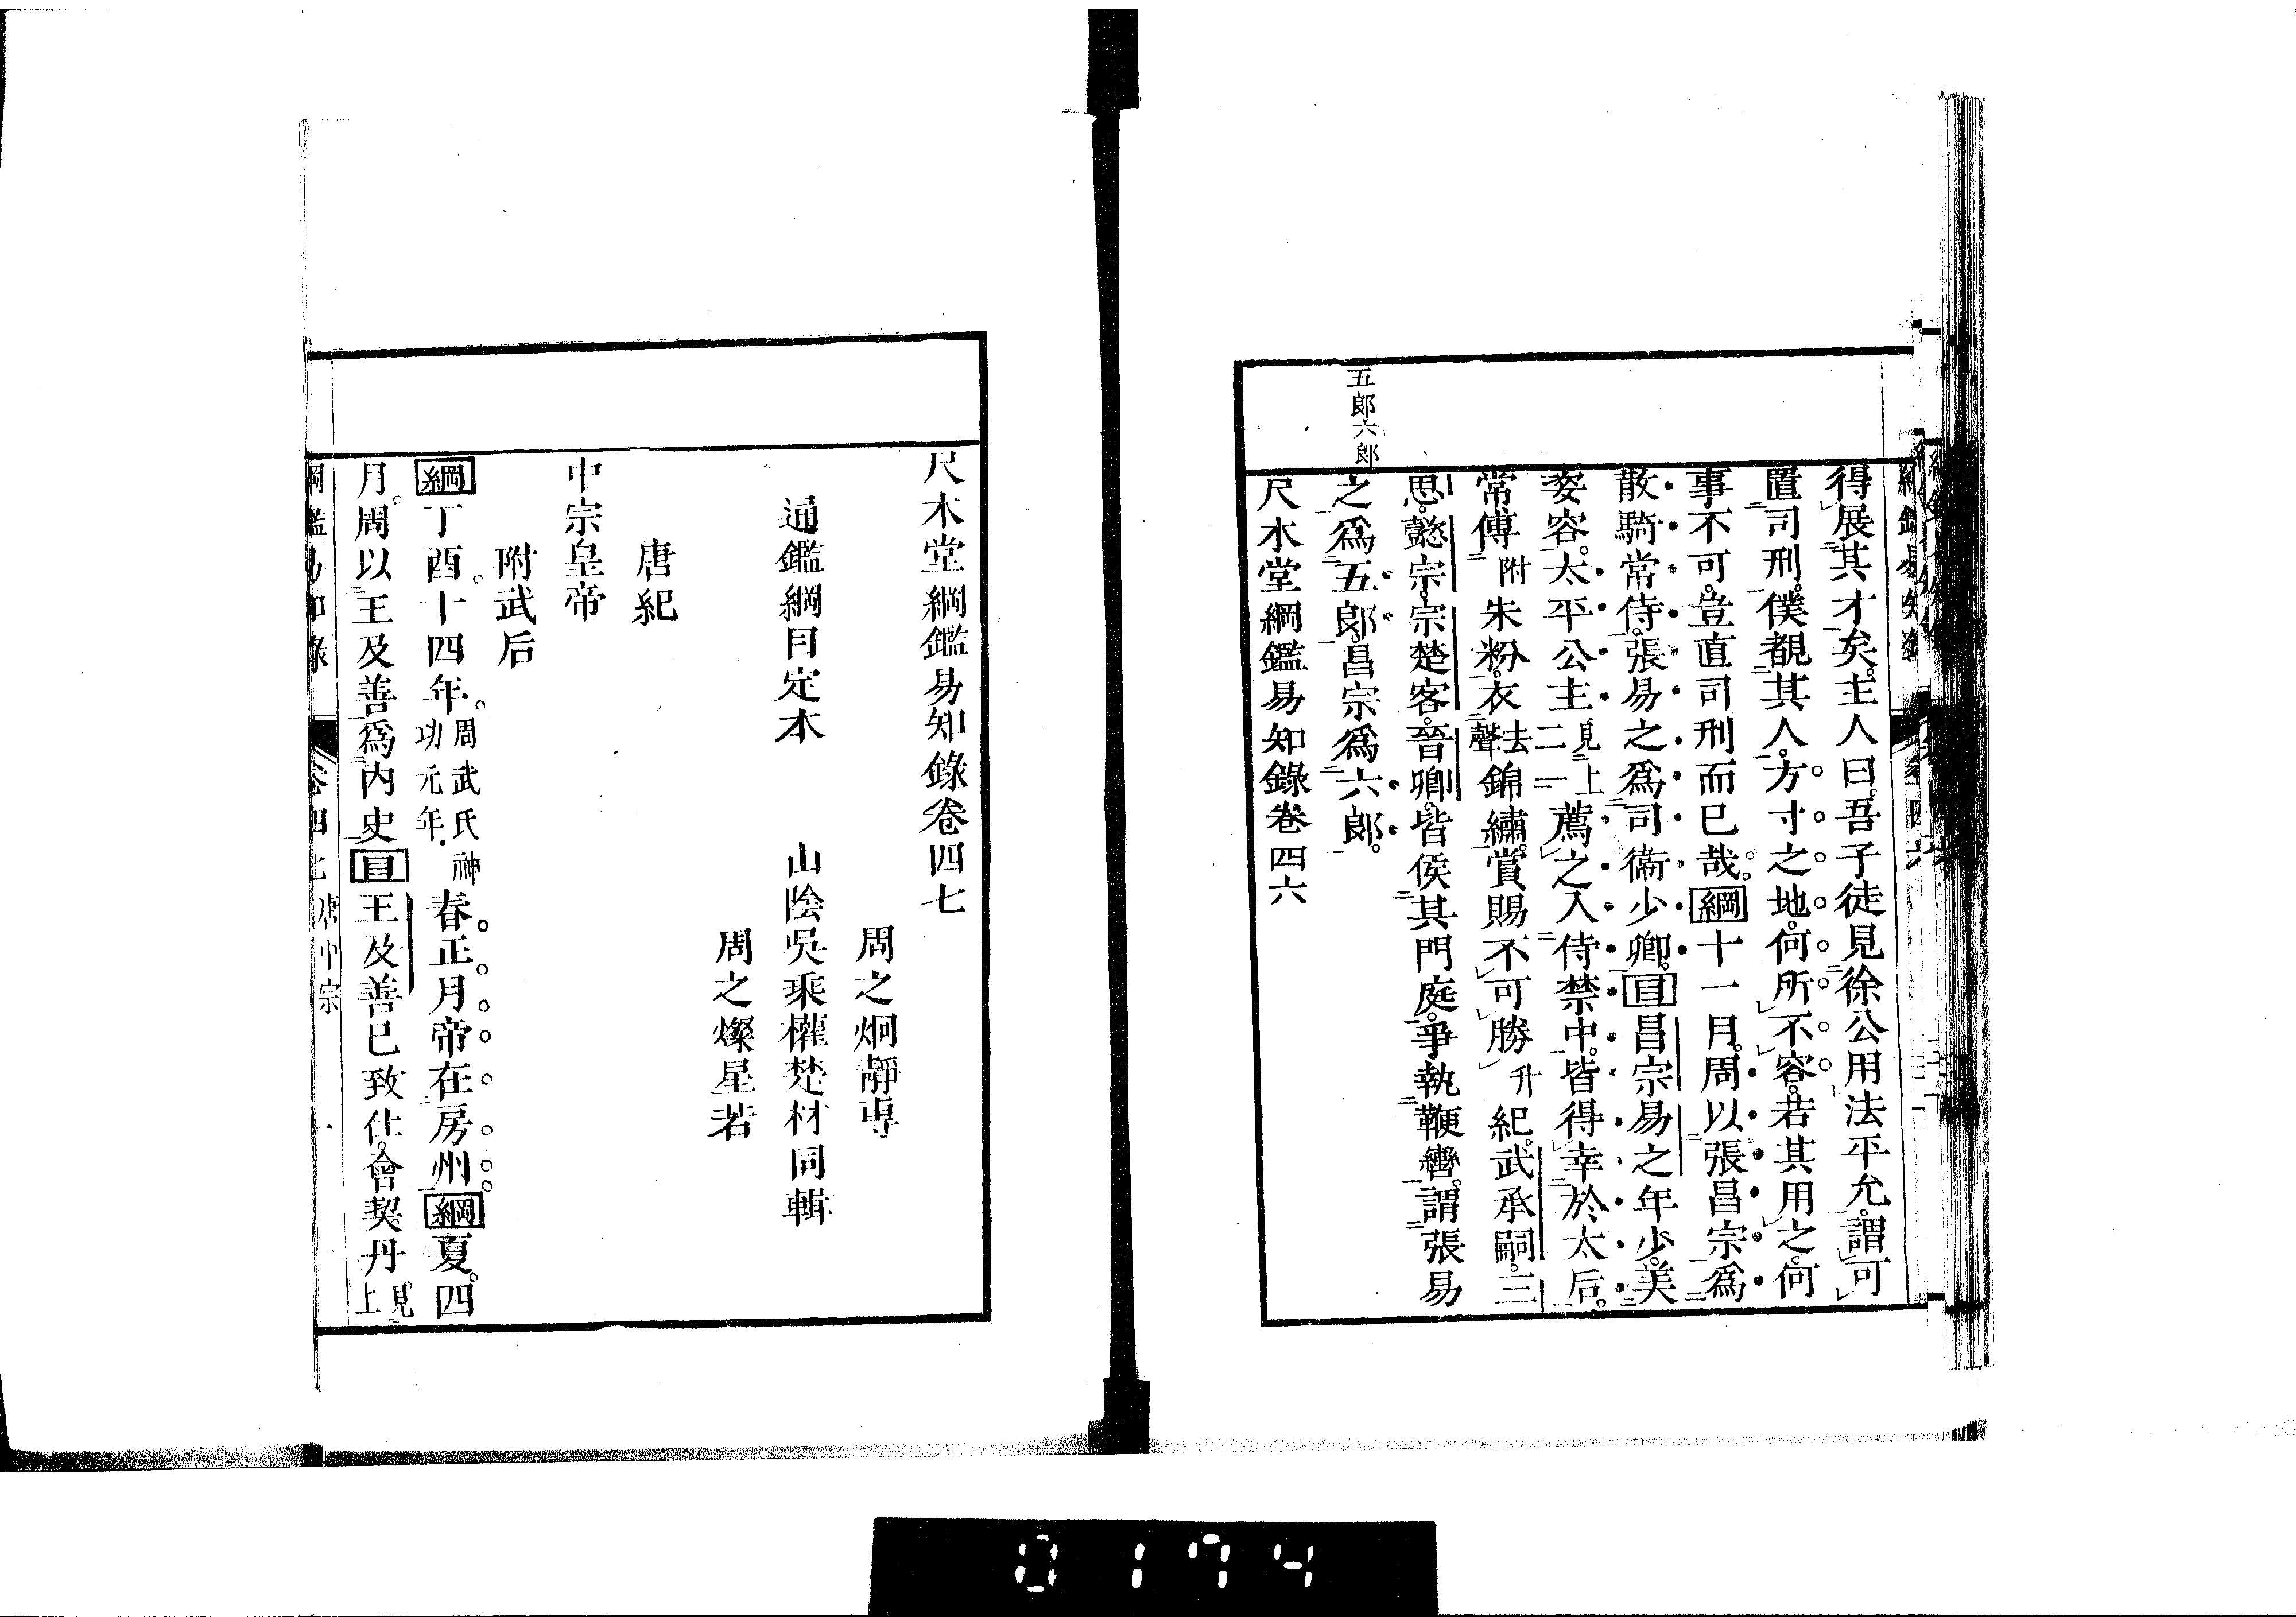 五郎六郎
得展其才矣。主人曰。吾子徒見徐公用法平允。謂可
置司刑。僕覩其人。方寸之地。何所不容。若其用之。何
事不可。豈直司刑而已哉。綱十一月。周以張昌宗爲
散騎常侍。張易之爲司衞少卿。目昌宗易之年少。美
姿容。太平公主見上二一薦之入侍禁中。皆得幸於太后。
常傅附朱粉。衣去聲錦繡。賞賜不可勝升紀。武承嗣。三
思。懿宗。宗楚客。晉卿。皆侯其門庭。爭執鞭轡。謂張易
之爲五郎。昌宗爲六郎。
尺木堂綱鑑易知錄卷四六
尺木堂綱鑑易知錄卷四七
周之炯靜專
通鑑綱目定本 山陰吳乘權楚材同輯
周之燦星若
唐紀
中宗皇帝
附武后
綱丁酉。十四年。周武氏神功元年。春。正月。帝在房州。綱夏。四
月。周以王及善爲內史目王及善已致仕。會契丹見上
綱鑑易知錄 卷四七 唐中宗 一
0174